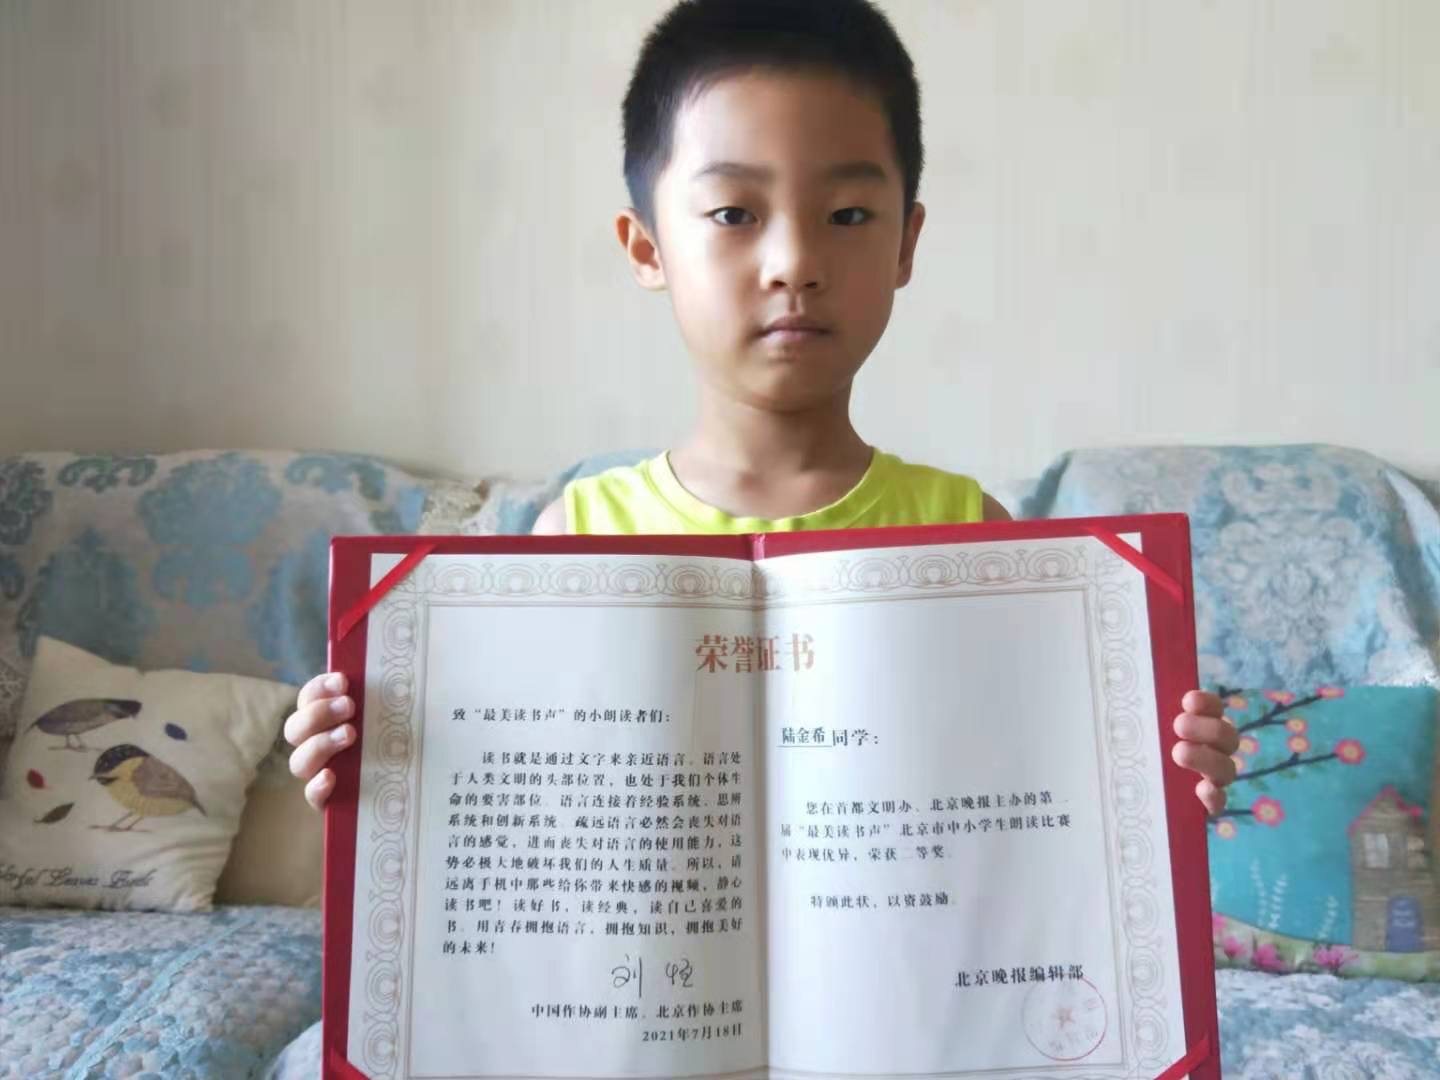 荣誉证书
致“最美读书声”的小朗读者们：
读书就是通过文字来亲近语言。语言处
于人类文明的头部位置，也处于我们个体生
命的要害部位。语言连接着经验系统、思辨
系统和创新系统。疏远语言必然会丧失对语
言的感觉，进而丧失对语言的使用能力，这
势必极大地破坏我们的人生质量。所以，请
远离手机中那些给你带来快感的视频，静心
读书吧！读好书，读经典，读自己喜爱的
书。用青春拥抱语言，拥抱知识，拥抱美好
的未来！
刘恒
中国作协副主席、北京作协主席
2021年7月18日
陆金希同学：
您在首都文明办、北京晚报主办的第二
届“最美读书声”北京市中小学生朗读比赛
中表现优异，荣获二等奖。
特颁此状，以资鼓励。
北京晚报编辑部